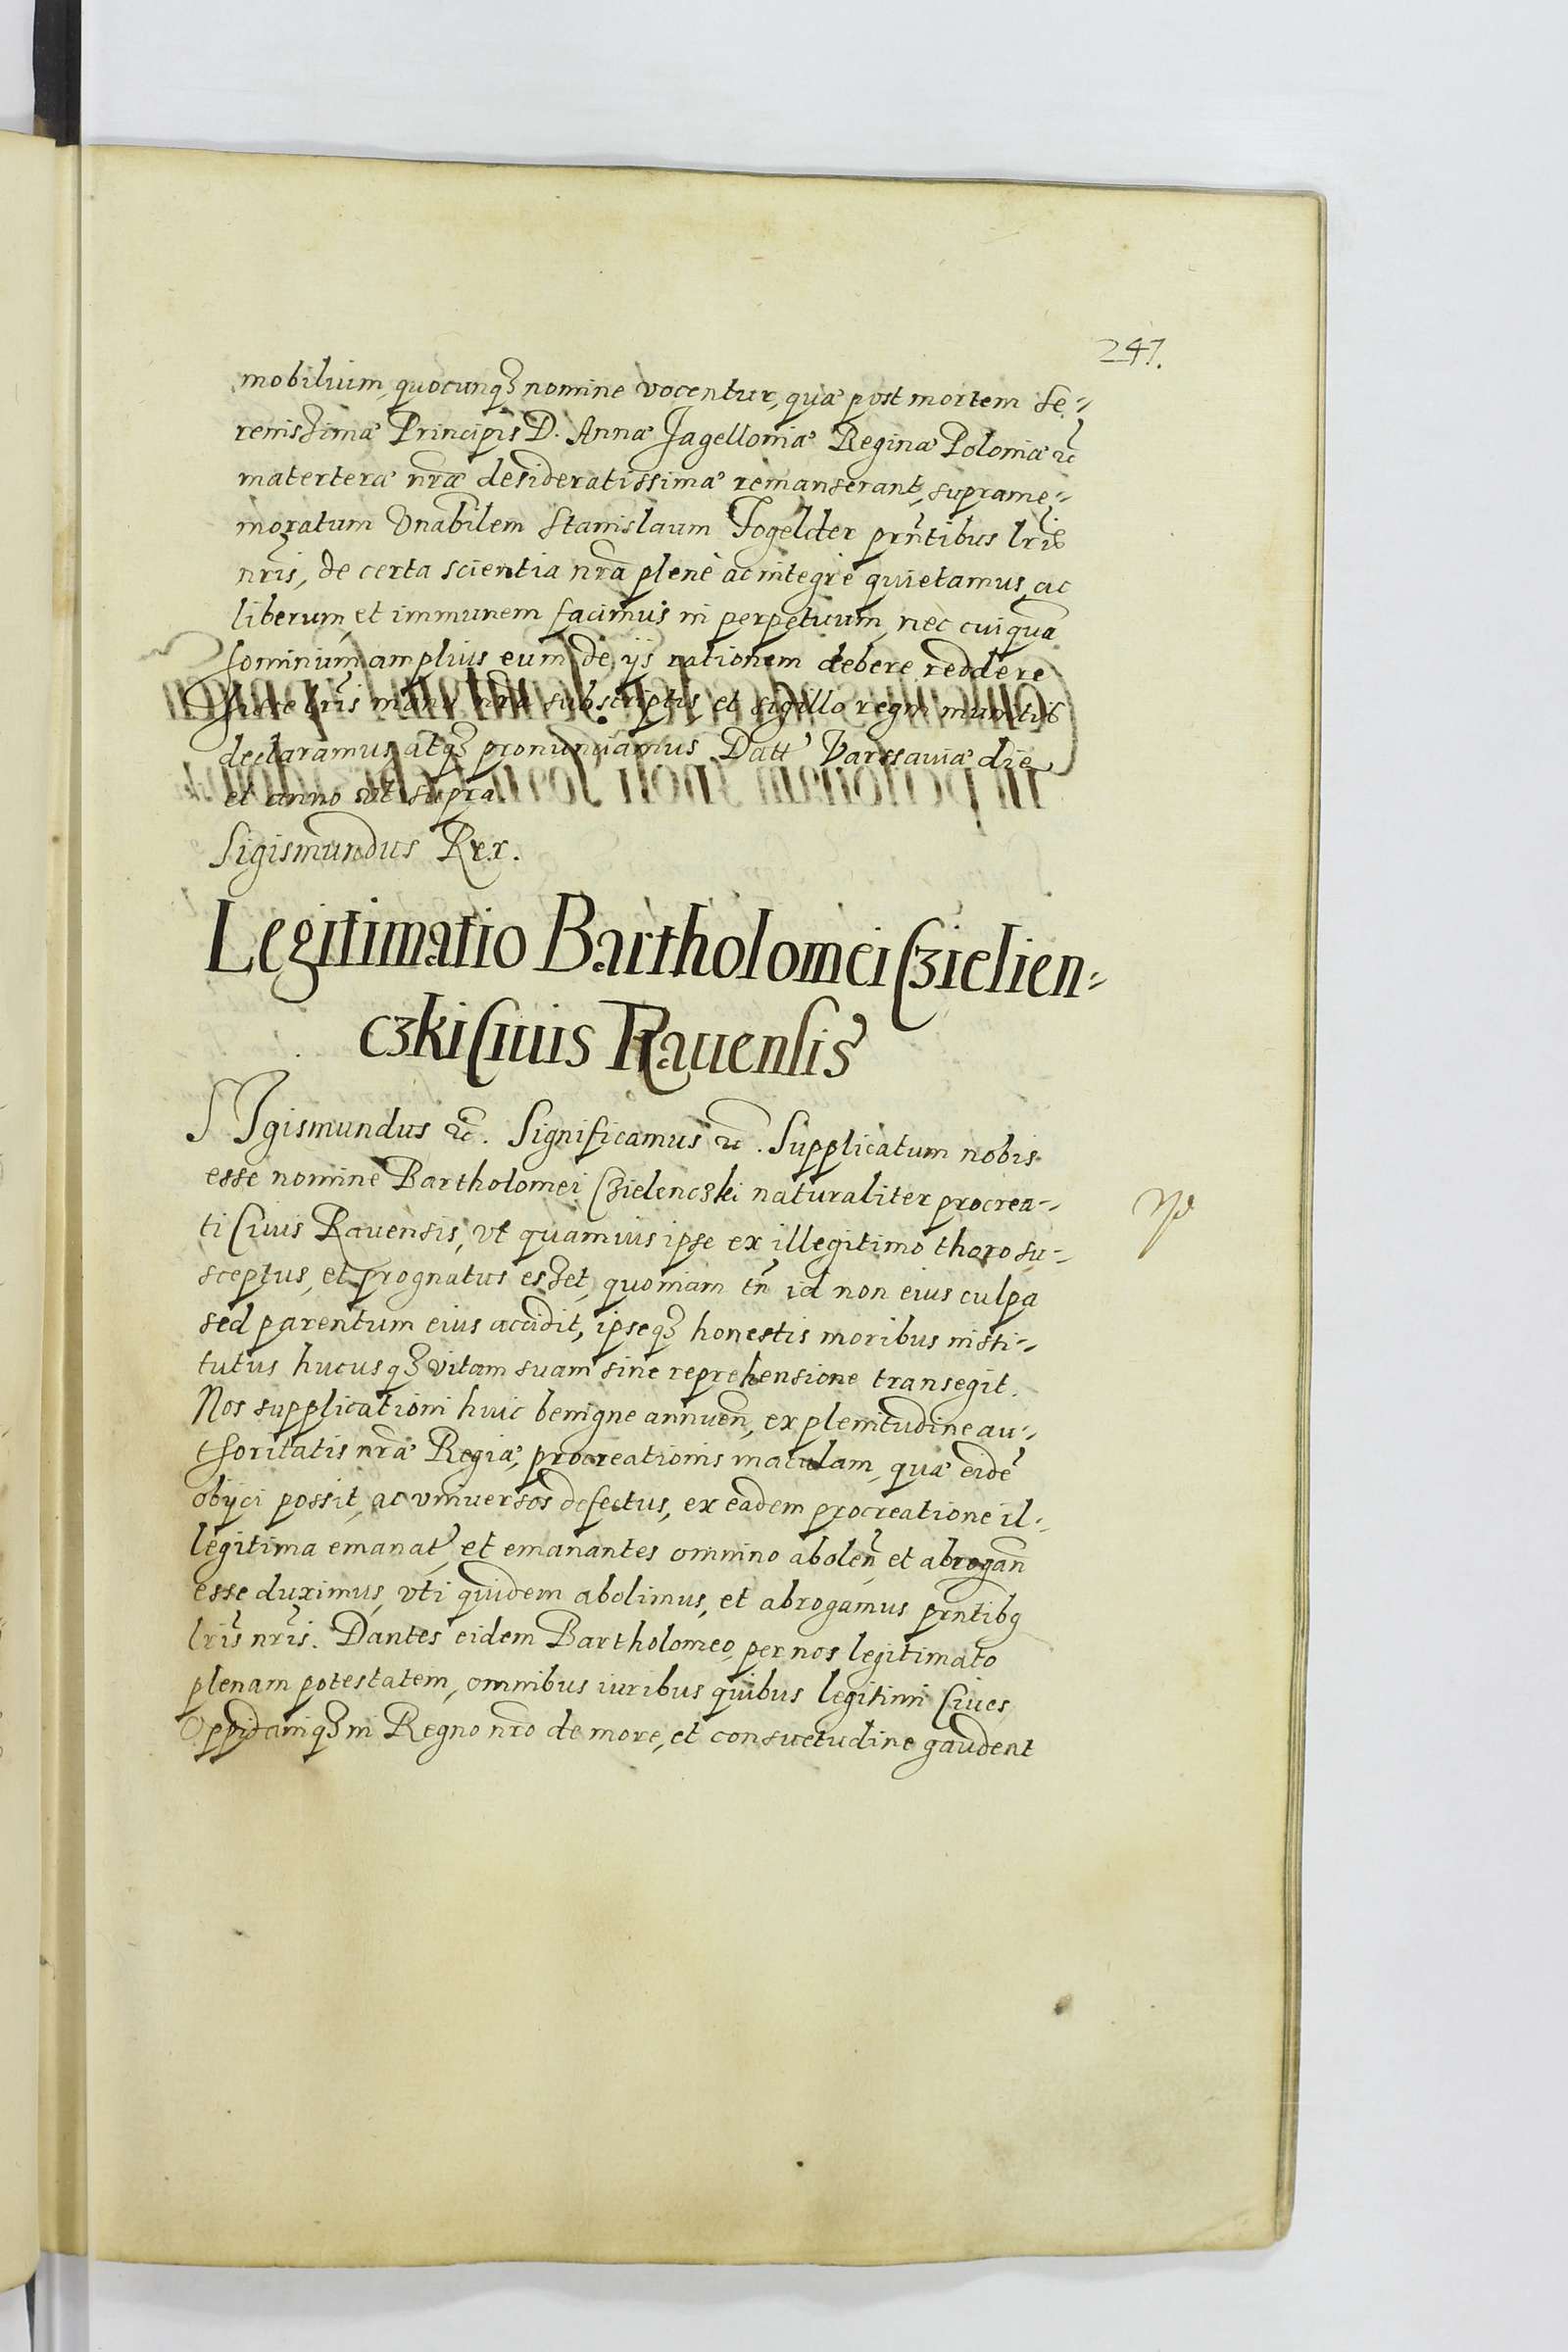 247.
mobilium, quocunq3 nomine vocentur, quæ post mortem Se:
renissimæ Principis D. Annæ Jagelloniæ Reginæ Poloniæ etc̃
materteræ nr̃æ desideratissimæ remanserant, suprame:
moratum Vnabilem Stanislaum Fogelder prñtibus lr̃is
nr̃is, de certa scientia nr̃a plenè ac integrè quietamus, ac
liberum, et immunem facimus in perpetuum, nec cuiquã
hominum amplius eum de ijs rationem debere reddere
hisce lr̃is manu nr̃a subscriptis et sigillo regni munitis
declaramus, atq3 pronunciamus. Datt Varssauiæ die
et anno vt supra.
Sigismundus Rex.
Legitimatio Bartholomei Czielien=
czki Ciuis Rauensis
SIgismundus etc̃. Significamus etc̃. Supplicatum nobis
esse nomine Bartholomei Czielenczki naturaliter procrea:
ti Ciuis Rauensis, vt quamuis ipse ex illegitimo thoro su:
sceptus, et prognatus esset, quoniam tñ id non eius culpa
sed parentum eius accidit, ipseq3 honestis moribus insti:
tutus hucusq3 vitam suam sine reprehensione transegit.
Nos supplicationi huic benigne annueñ, ex plenitudine au:
thoritatis nr̃æ Regiæ, procreationis maculam, quæ eidẽ
obijci possit, ac vniuersos defectus, ex eadem procreatione il:
legitima emanat, et emanantes omnino aboleñ et abrogañ
esse duximus, vti quidem abolimus, et abrogamus prñtibq
lr̃is nr̃is. Dantes eidem Bartholomeo, per nos legitimato
plenam potestatem, omnibus iuribus quibus legitimi Ciues
Oppidaniq3 in Regno nr̃o de more, et consuetudine gaudent